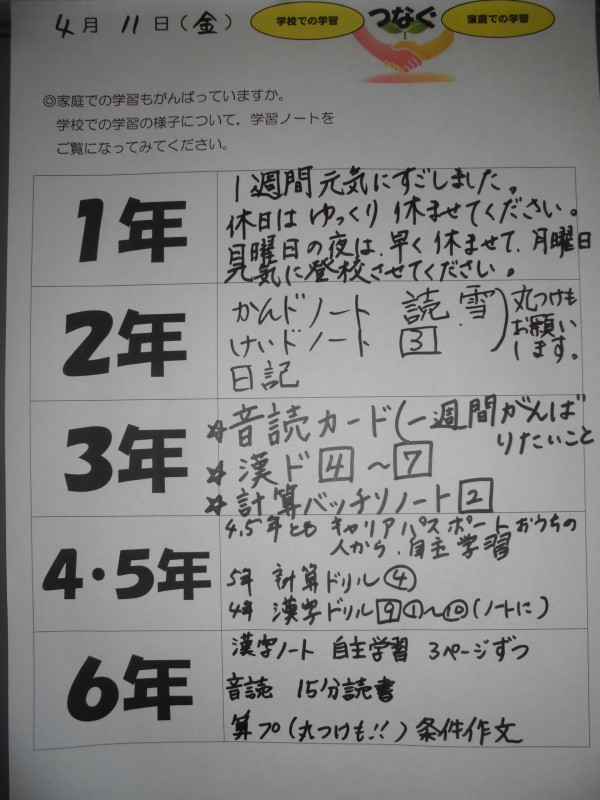 4月 11日(金)
学校での学習
つなぐ
家庭での学習
◎家庭での学習もがんばっていますか。
学校での学習の様子について，学習ノートを
ご覧になってみてください。
1年
1週間元気にすごしました。
休日は ゆっくり 休ませてください。
日曜日の夜は、早く休ませて、月曜日
元気に登校させてください。
2年
かんドノート 読 雪
けいドノート 3
日記
丸つけも
お願い
します。
3年
☆音読カード(一週間がんば
りたいこと
☆漢ド4～7
☆計算バッチリノート2
4・5年
4.5年とも キャリアパスポート おうちの
人から、自主学習
5年 計算ドリル④
4年 漢字ドリル9①～⑩(ノートに)
6年
漢字ノート 自主学習 3ページずつ
音読 15分読書
算プ(丸つけも!!) 条件作文